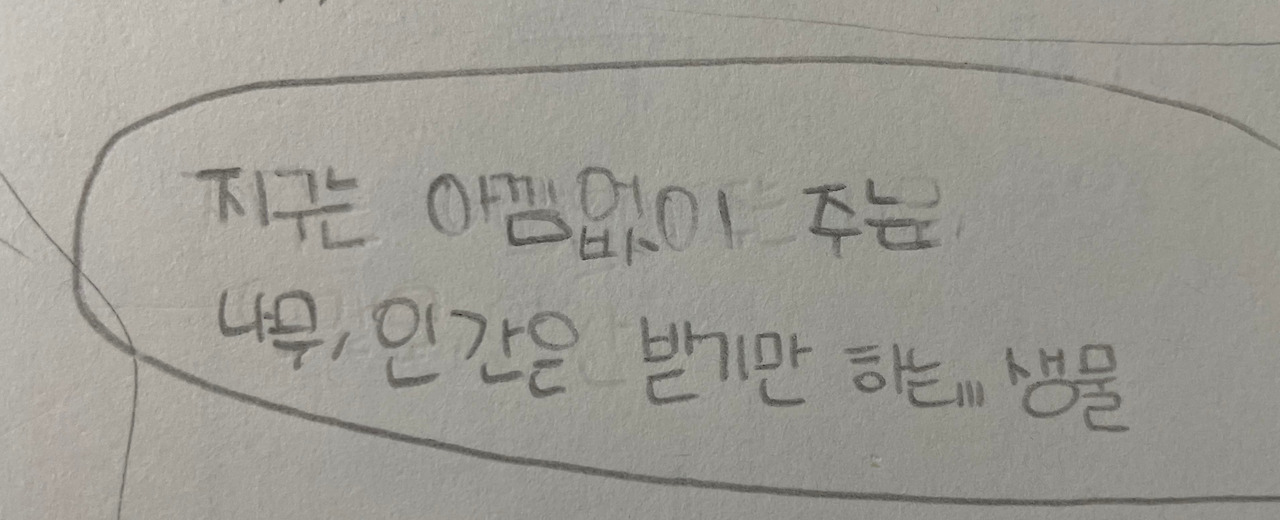 지구는 아낌없이 주는
나무, 인간은 받기만 하는... 생물